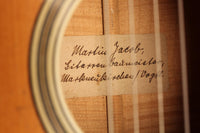 Martin Jacob,
Gitarrenbaumeister,
Markneukirchen / Vogtl.